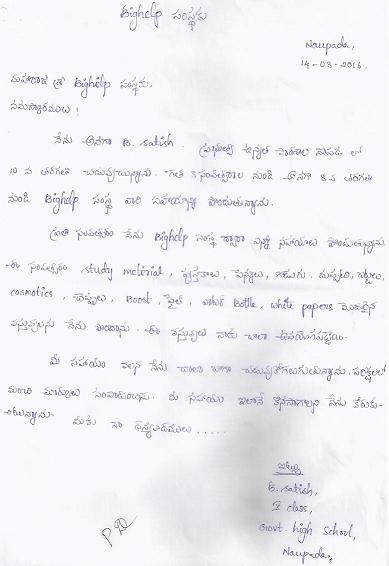 Bighelp సంస్థకు
Naupada,
14-03-2016.
మహారాజ శ్రీ Bighelp సంస్థకు,
నమస్కారములు !
నేను అనగా B. satish. ప్రభుత్వ ఉన్నత పాఠశాల నౌపడ లో
10 వ తరగతి చదువుచున్నాను. గత 3 సంవత్సరాల నుండి అనగా 8 వ తరగతి
నుండి Bighelp సంస్థ వారి సహాయాన్ని పొందుతున్నాను.
ప్రతి సంవత్సరం నేను Bighelp సంస్థ ద్వారా ఎన్నో సహాయాలు పొందుతున్నాను
ఈ సంవత్సరం study meterial, పుస్తకాలు, పెన్నులు, దుప్పటి, బట్టలు,
cosmotics, చెప్పులు, Boost, ప్లేట్, water Bottle, white papers మొదలైన
వస్తువులను నేను పొందాను. ఈ వస్తువులు నాకు చాలా ఉపయోగపడ్డాయి.
మీ సహాయం వలన నేను చాలా బాగా చదువుకోగలుగుతున్నాను. పరీక్షలలో
మంచి మార్కులు సంపాదించాను. మీ సహాయం ఇలానే కొనసాగాలని నేను కోరుకుంటున్నాను.
మీకు నా ధన్యవాదములు.....
ఇట్లు
B. satish,
X class,
Govt high school,
Naupada.